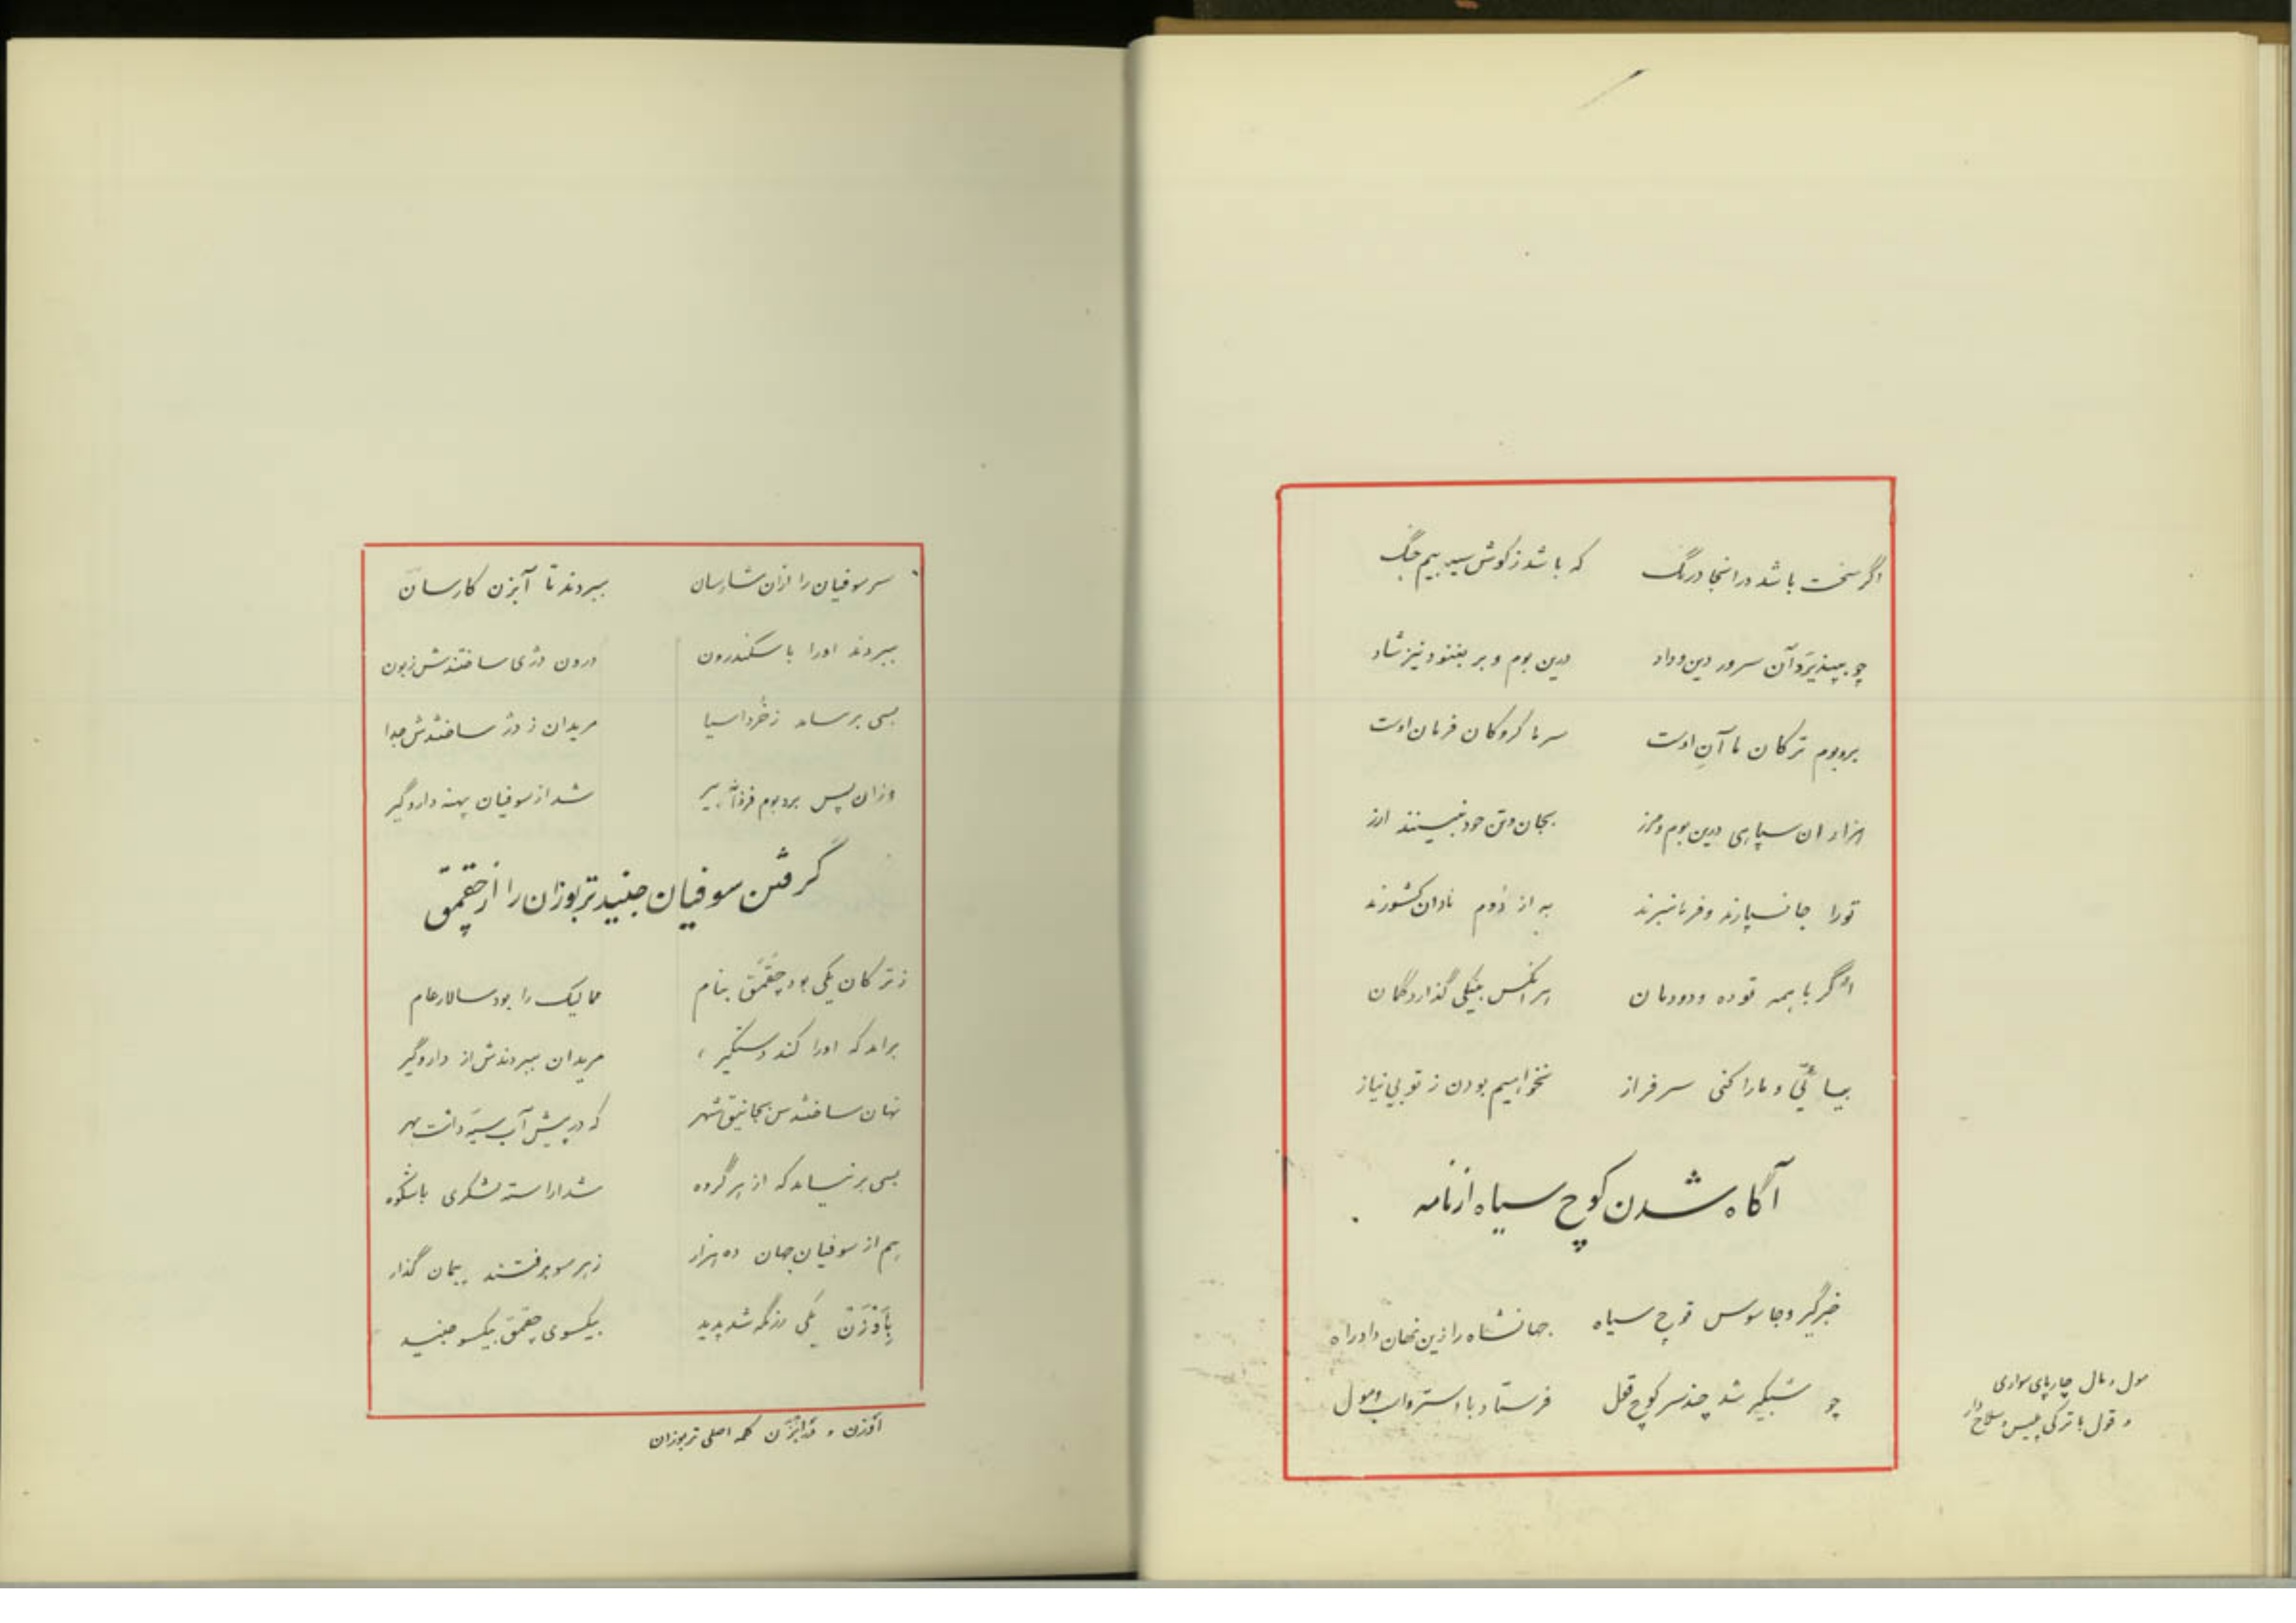 اگر سخت باشد در انجا درنگ که باشد ز کوش سیر بیم جنگ
چو بپذیرد آن سرور دین و داد درین بوم و بر بغنود نیز شاد
بروبوم ترکان ما آنِ اوست سر ما گروگان فرمان اوست
هزاران سپاهی درین بوم و مرز بجان و تن خود نبینند ارز
تورا جانسپارند و فرمانبرند به از مردم نادان کشورند
اگر با همه توده و دودمان هرانکس بنیکی گذارد گمان
بیائی و مارا کنی سرفراز نخواهیم بودن ز تو بی نیاز
آگاه شدن کوچ سیاه از نامه
خبرگیر و جاسوس قوچ سیاه جهانشاه را زین نهان داد راه
چو شبگیر شد چند سر کوچ قول فرستاد با استر و اسب و مول
مول و مال چارپای سواری
و قول با ترکی پلیس و سلاح دار
سر سوفیان را ازان شارسان ببردند تا آبزن کارسان
ببردند اورا باسکندرون درون دژی ساختندش زبون
بسی بر نیامد مریدان ز دژ ساختندش جدا
وزان پس بروبوم فرزانه پیر شد از سوفیان پهنه داروگیر
گرفتن سوفیان جنید تربوزان را از چقمق
ز ترکان یکی بود چقمق بنام ممالیک را بود سالار عام
برامد که اورا کند دستگیر مریدان ببردندش از داروگیر
نهان ساختندش بجانیق شهر که در پیش آب سیه داشت بهر
بسی برنیامد که از هر گروه شد اراسته لشکری باشکوه
هم از سوفیان جهان ده هزار ز هر سو برفتند پیمان گذار
بآوزن یکی رزمگه شد پدید بیکسوی چقمق بیکسو جنید
آوزن و ترابزن کلمه اصلی تربوزان